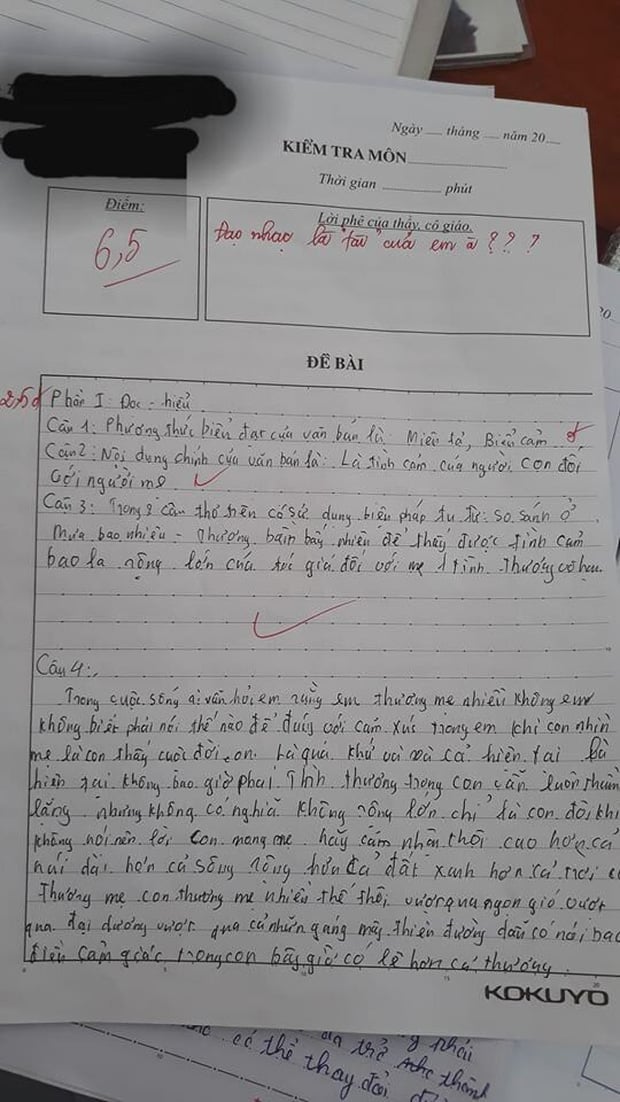 Ngày ___ tháng ___ năm 20___
KIỂM TRA MÔN
Thời gian ______ phút
Điểm:
6,5
Lời phê của thầy, cô giáo.
Đạo nhạc là "tài" của em à???
ĐỀ BÀI
2,5đ
Phần I: Đọc - hiểu
Câu 1: Phương thức biểu đạt của văn bản là: Miêu tả, Biểu cảm
Câu 2: Nội dung chính của văn bản là: Là tình cảm của người con đối
với người mẹ
Câu 3: Trong 2 câu thơ trên có sử dụng biện pháp tu từ: so sánh ở
Mưa bao nhiêu - Thương bầm bấy nhiêu để thấy được tình cảm
bao la rộng lớn của tác giả đối với mẹ 1 tình thương vô hạn
Câu 4:
Trong cuộc sống ai vẫn hỏi em rằng em thương mẹ nhiều không em
không biết phải nói thế nào để đúng với cảm xúc trong em khi con nhìn
mẹ là con thấy cuộc đời con. Là quá khứ và và cả hiện tại là
hiện tại không bao giờ phai. Tình thương trong con vẫn luôn thầm
lặng nhưng không có nghĩa không rộng lớn chỉ là con đôi khi
không nói nên lời con mong mẹ hãy cảm nhận thôi cao hơn cả
núi dài hơn cả sông rộng hơn cả đất xanh hơn cả trời
Thương mẹ con thương mẹ nhiều thế thôi vượt qua ngọn gió vượt
qua đại dương vượt qua cả những gáng mây thiên đường dẫu có nói bao
điều cảm giác trong con bây giờ có lẽ hơn cả thương.
KOKUYO
phải
trở thành
có thể thay đổi